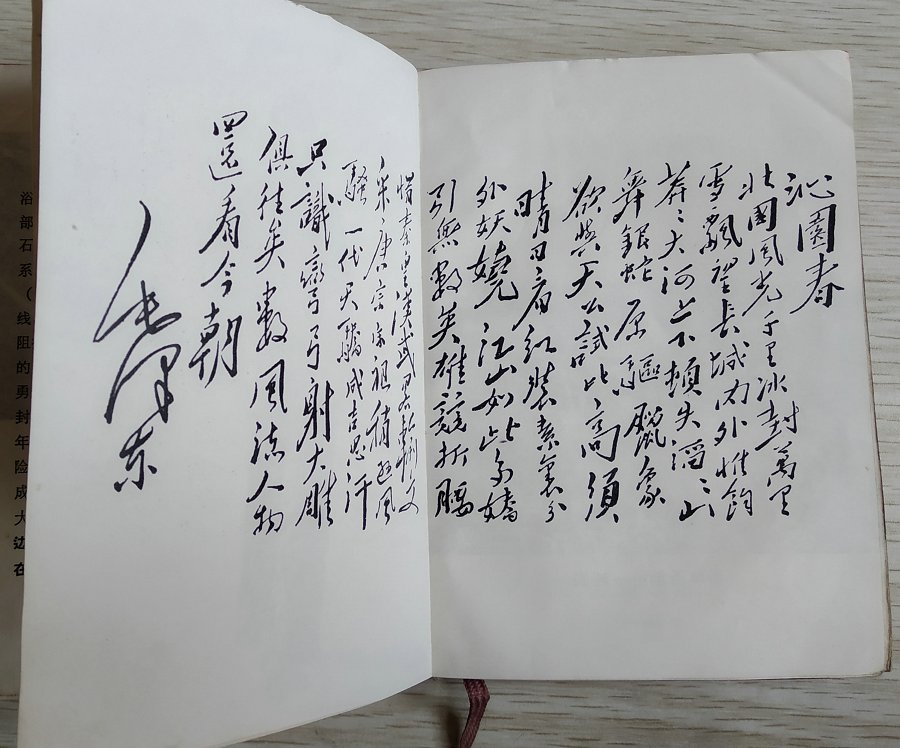 沁園春
北國風光千里冰封萬里
雪飄望長城内外惟餘
莽々大河上下頓失滔々山
舞銀蛇原驅臘象
欲與天公試比高須
晴日看紅裝素裹分
外妖嬈江山如此多嬌
引無數英雄競折腰
惜秦皇漢武略輸文
采唐宗宋祖稍遜風
騷一代天驕成吉思汗
只識彎弓射大雕
俱往矣數風流人物
還看今朝
毛澤東
浴
部
石
系
（
线
阻
的
勇
封
年
险
成
大
边
在